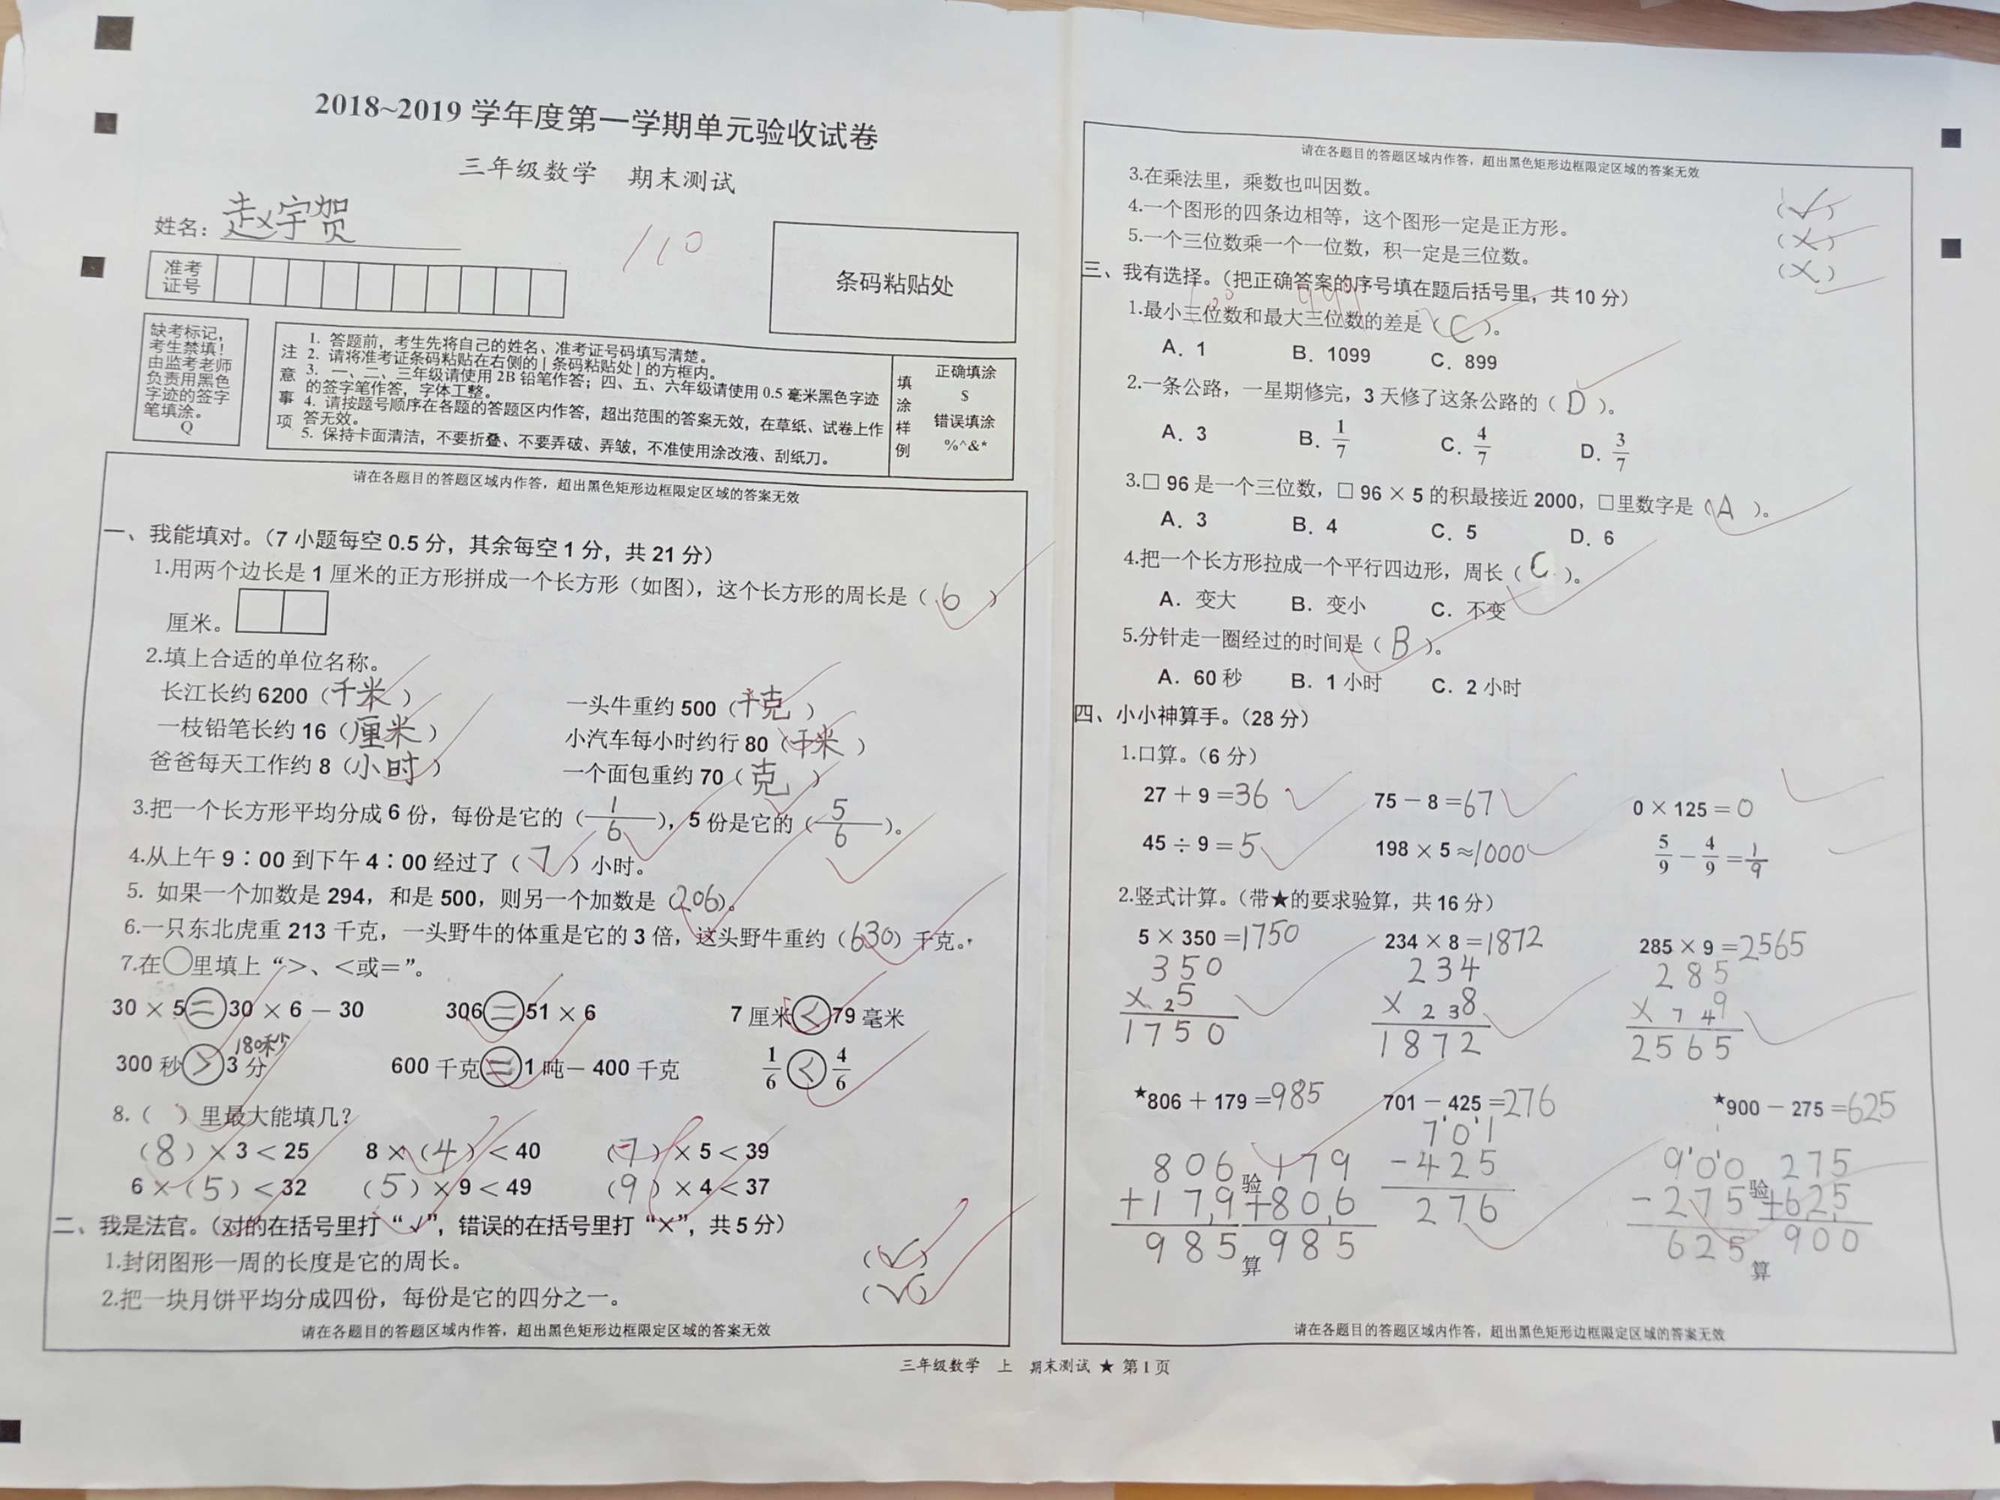 2018~2019 学年度第一学期单元验收试卷
三年级数学 期末测试
姓名：赵宇贺
110
准考证号
条码粘贴处
缺考标记，
考生禁填！
由监考老师
负责用黑色
字迹的签字
笔填涂。
Q
注意事项
1. 答题前，考生先将自己的姓名、准考证号码填写清楚。
2. 请将准考证条码粘贴在右侧的[条码粘贴处]的方框内。
3. 一、二、三年级请使用 2B 铅笔作答；四、五、六年级请使用 0.5 毫米黑色字迹
的签字笔作答，字体工整。
4. 请按题号顺序在各题的答题区内作答，超出范围的答案无效，在草纸、试卷上作
答无效。
5. 保持卡面清洁，不要折叠、不要弄破、弄皱，不准使用涂改液、刮纸刀。
填涂样例
正确填涂
S
错误填涂
%^&*
请在各题目的答题区域内作答，超出黑色矩形边框限定区域的答案无效
一、我能填对。（7 小题每空 0.5 分，其余每空 1 分，共 21 分）
1.用两个边长是 1 厘米的正方形拼成一个长方形（如图），这个长方形的周长是（ 6 ）
厘米。
2.填上合适的单位名称。
长江长约 6200（千米） 一头牛重约 500（千克）
一枝铅笔长约 16（厘米） 小汽车每小时约行 80（千米）
爸爸每天工作约 8（小时） 一个面包重约 70（克）
3.把一个长方形平均分成 6 份，每份是它的（1/6），5 份是它的（5/6）。
4.从上午 9∶00 到下午 4∶00 经过了（ 7 ）小时。
5. 如果一个加数是 294，和是 500，则另一个加数是（206）。
6.一只东北虎重 213 千克，一头野牛的体重是它的 3 倍，这头野牛重约（630）千克。
7.在○里填上“＞、＜或＝”。
30 × 5 = 30 × 6 − 30 306 = 51 × 6 7 厘米 < 79 毫米
180秒
300 秒 > 3 分 600 千克 = 1 吨 − 400 千克 1/6 < 4/6
8.（ ）里最大能填几？
（8）× 3 < 25 8 ×（4）< 40 （7）× 5 < 39
6 ×（5）< 32 （5）× 9 < 49 （9）× 4 < 37
二、我是法官。（对的在括号里打“√”，错误的在括号里打“×”，共 5 分）
1.封闭图形一周的长度是它的周长。 （√）
2.把一块月饼平均分成四份，每份是它的四分之一。 （√）
请在各题目的答题区域内作答，超出黑色矩形边框限定区域的答案无效
请在各题目的答题区域内作答，超出黑色矩形边框限定区域的答案无效
3.在乘法里，乘数也叫因数。 （√）
4.一个图形的四条边相等，这个图形一定是正方形。 （×）
5.一个三位数乘一个一位数，积一定是三位数。 （×）
三、我有选择。（把正确答案的序号填在题后括号里，共 10 分）
100 999
1.最小三位数和最大三位数的差是（ C ）。
A. 1 B. 1099 C. 899
2.一条公路，一星期修完，3 天修了这条公路的（ D ）。
A. 3 B. 1/7 C. 4/7 D. 3/7
3.□ 96 是一个三位数，□ 96 × 5 的积最接近 2000，□里数字是（ A ）。
A. 3 B. 4 C. 5 D. 6
4.把一个长方形拉成一个平行四边形，周长（ C ）。
A. 变大 B. 变小 C. 不变
5.分针走一圈经过的时间是（ B ）。
A. 60 秒 B. 1 小时 C. 2 小时
四、小小神算手。（28 分）
1.口算。（6 分）
27 + 9 = 36 75 − 8 = 67 0 × 125 = 0
45 ÷ 9 = 5 198 × 5 ≈ 1000 5/9 − 4/9 = 1/9
2.竖式计算。（带★的要求验算，共 16 分）
5 × 350 = 1750 234 × 8 = 1872 285 × 9 = 2565
350 234 285
× 25 × 238 × 749
1750 1872 2565
★806 + 179 = 985 701 − 425 = 276 ★900 − 275 = 625
806 179 701 900 275
+179 验 +806 −425 −275 验 +625
985 算 985 276 625 算 900
请在各题目的答题区域内作答，超出黑色矩形边框限定区域的答案无效
三年级数学 上 期末测试 ★ 第 1 页